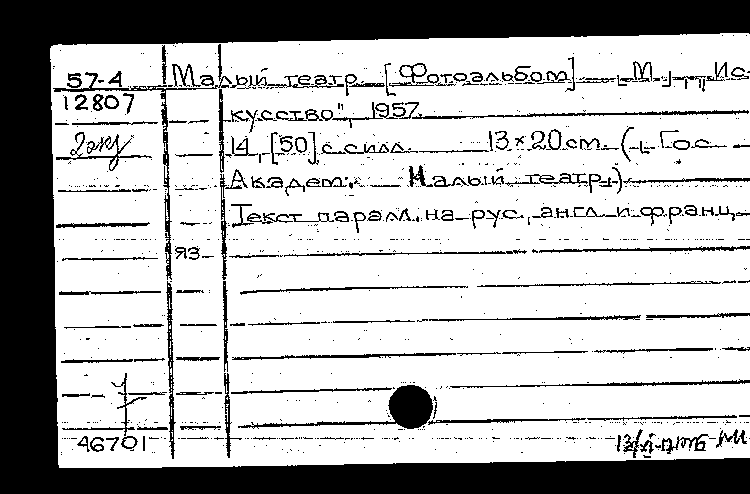 57-4 Малый театр. [Фотоальбом] [М.], „Ис-
12807 кусство", 1957.
2 экз 14, [50] с. с илл. 13×20 см. (Гос.
Академ. Малый театр)
Текст паралл. на рус., англ. и франц.
яз.
46701